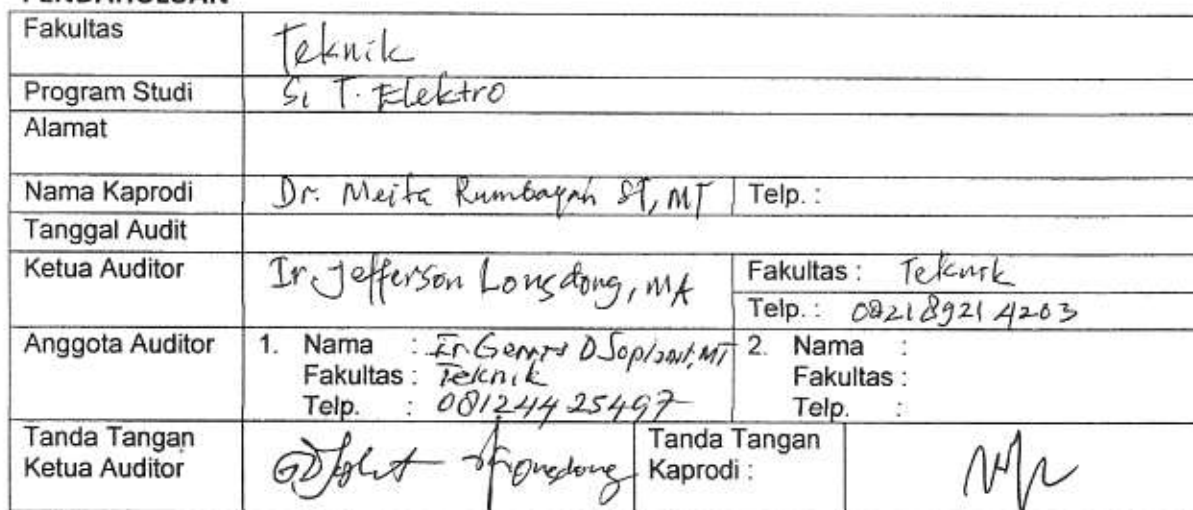 PENDAHULUAN
Fakultas Teknik
Program Studi S1 T. Elektro
Alamat
Nama Kaprodi Dr. Meita Rumbayan ST, MT Telp. :
Tanggal Audit
Ketua Auditor Ir. Jefferson Longdong, MA Fakultas : Teknik
Telp. : 082189214203
Anggota Auditor 1. Nama : Ir. D MT 2. Nama :
Fakultas : Teknik Fakultas :
Telp. : 08124425497 Telp. :
Tanda Tangan Tanda Tangan
Ketua Auditor Kaprodi :